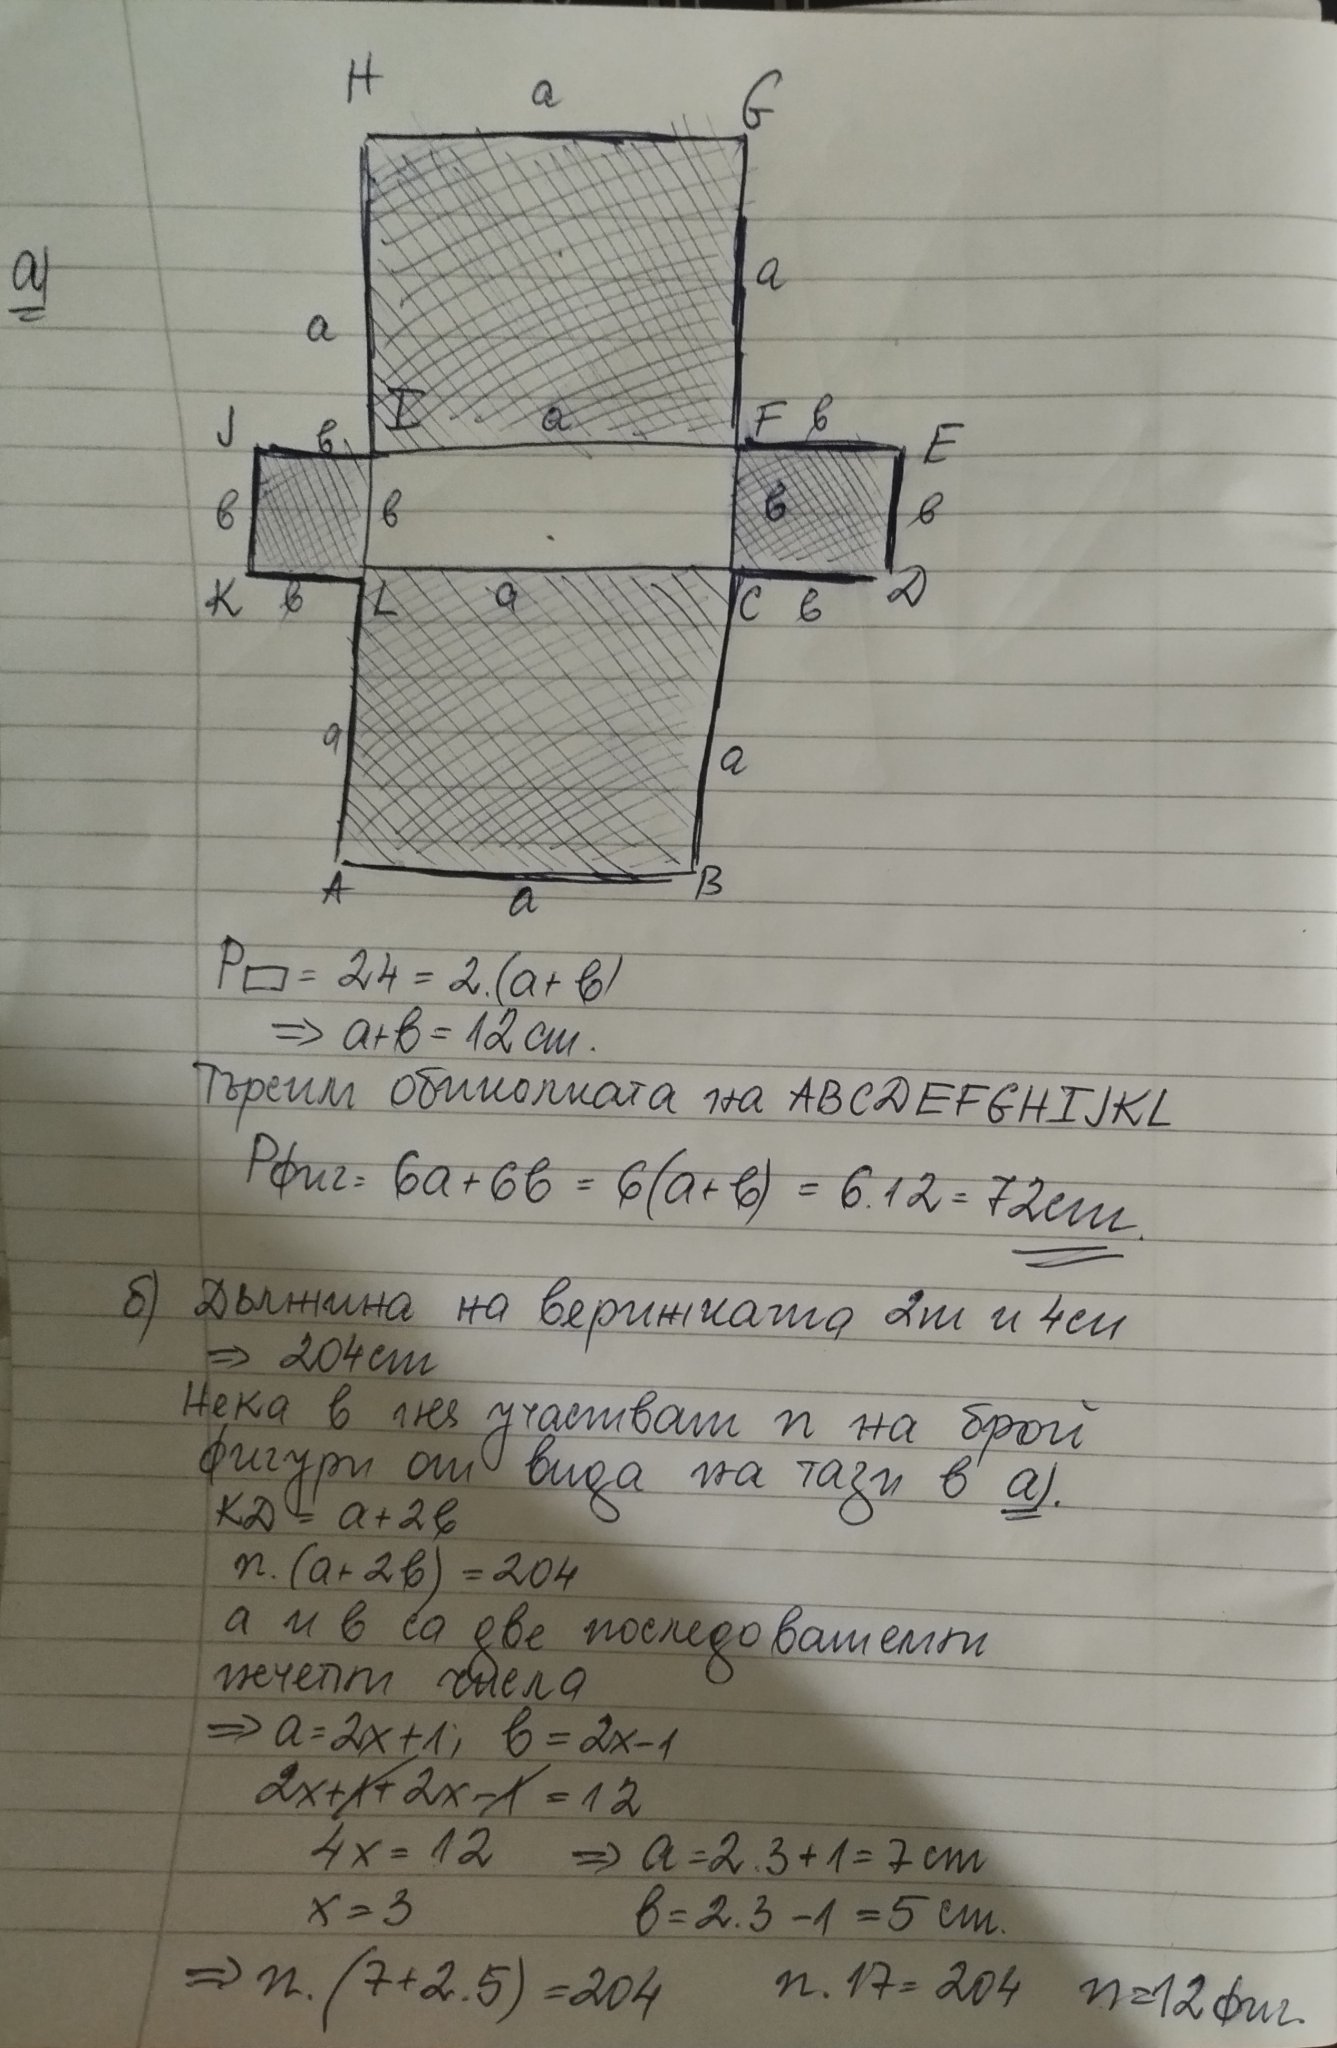 a)
H a G
a a
J в I a F в E
в в в в
K в L a C в D
a a
A a B
P▭ = 24 = 2.(a+в)
⇒ a+в = 12 cm.
Търсим обиколката на ABCDEFGHIJKL
Pфиг = 6a+6в = 6(a+в) = 6.12 = 72cm.
б) Дължина на верижката 2m и 4cm
⇒ 204cm
Нека в нея участват n на брой
фигури от вида на тази в a).
KD = a+2в
n.(a+2в) = 204
a и в са две последователни
нечетни числа
⇒ a=2x+1; в=2x-1
2x+1+2x-1 = 12
4x = 12 ⇒ a=2.3+1=7cm
x=3 в=2.3-1=5 cm.
⇒ n.(7+2.5)=204 n.17=204 n=12 фиг.